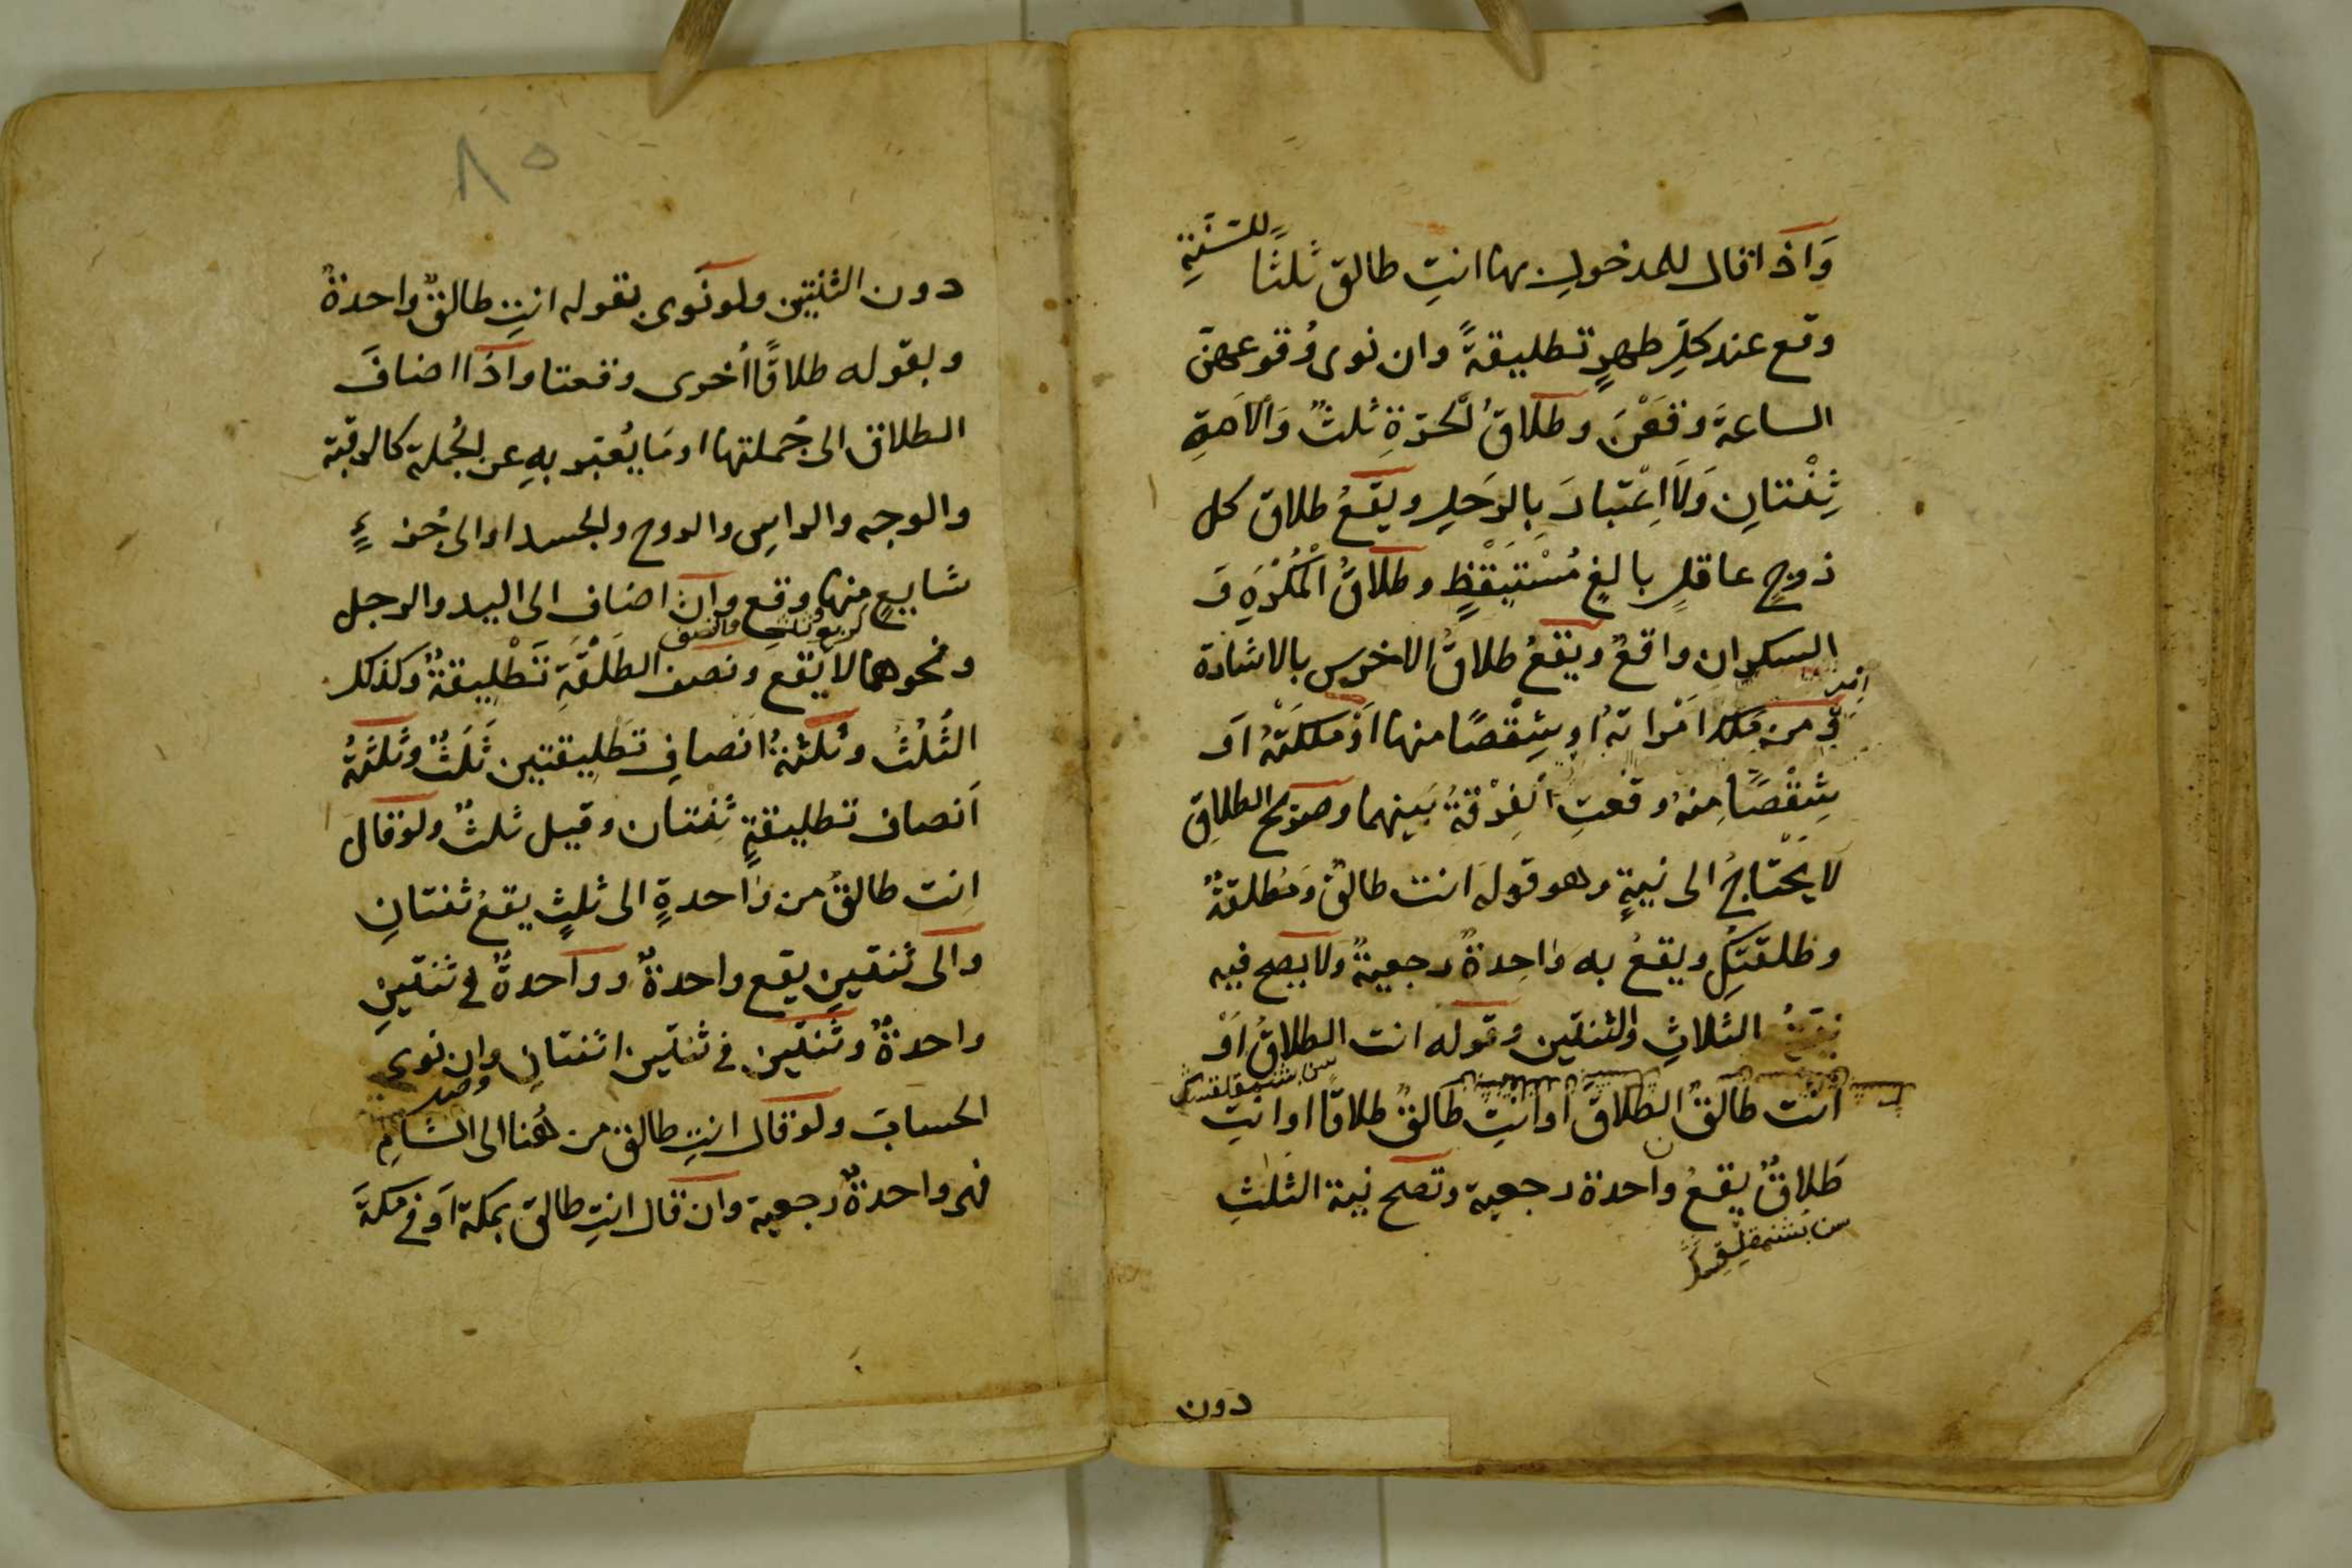 وَاذا قال للمدخولِ بها انتِ طالق ثلثًا للسُنَّةِ
وقع عند كلِّ طهرٍ تطليقةً وان نوى وُقوعهنّ
الساعةَ وقَعْنَ وطلاقُ الحرّةِ ثلثٌ وَالاَمةِ
ثِنْتانِ وَلَا اِعْتبارَ بِالرَجلِ ويقعُ طلاق كل
زوجٍ عاقلٍ بالغٍ مُسْتَيْقِظٍ وطلاقُ الْمُكْرَهِ وَ
السكران واقعٌ ويَقعُ طلاقُ الاخرس بالاشارة
ومن مَلك امْراتهُ او شِقْصًا منها اَوْ مَلكَتْهُ اَو
شِقْصًا مِنهُ وقعتِ الفِرْقةُ بَينهما وصريح الطلاقِ
لَا يَحْتاجُ الى نيةٍ وهو قولهَ انت طالقٌ وَمُطلقةٌ
وطلقتكِ ويقعُ به واحِدةٌ رجعيةٌ ولا يصح فيه
نيةُ الثلاثِ والثنتين وقوله انت الطلاقُ اَوْ
انت طالقٌ الطلاق او انتِ طالقٌ طلاقًا او انتِ
طَلاقٌ يقعُ واحدة رجعية وتصح نية الثلثِ
دون
٨٥
دون الثنتين ولو نَوى بقوله انتِ طالقٌ واحدةً
وبقوله طلاقًا اُخرى وقعتا واذا اضافَ
الطلاق الى جُملتها او مَا يُعَبّر بهِ عن الجُملة كالرقبة
والوجه والراسِ والروح والجسد او الى جُزءٍ
شايعٍ منها وقع وان اضاف الى اليد والرجل
كربع وثلث والنصف
ونحوهما لا يقع ونصف الطَلْقَةِ تَطْليقةٌ وكذلك
الثُلُثُ وثلثةُ انْصافِ تَطليقتين ثَلَثٌ وثَلثةُ
اَنصاف تطليقةٍ ثِنتان وقيل ثلثٌ ولو قالَ
اِنت طالقٌ من واحدةٍ الى ثلثٍ يقعُ ثنتانِ
والى ثنتينِ يقع واحدةٌ وواحدةٌ في ثنتينِ
واحدةٌ وثنتين في ثنتين اثنتانِ وان نوى
الحسابَ ولو قال انتِ طالق من هُنا الى الشامِ
فهى واحدةٌ رجعية وان قال انتِ طالق بمكة اَو في مكةَ